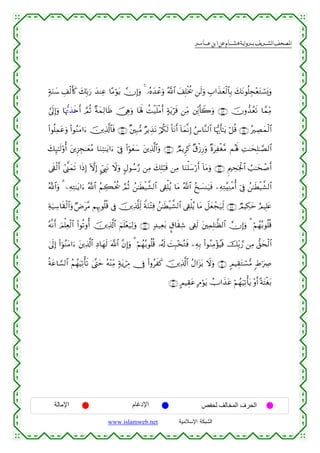 المصحف الشريف برواية هشام عن ابن عامر
وَيَسْتَعْجِلُونَكَ بِٱلْعَذَابِ وَلَن يُخْلِفَ ٱللَّهُ وَعْدَهُۥ ۚ وَإِنَّ يَوْمًا عِندَ رَبِّكَ كَأَلْفِ سَنَةٍ
مِّمَّا تَعُدُّونَ ۝ وَكَأَيِّن مِّن قَرْيَةٍ أَمْلَيْتُ لَهَا وَهِىَ ظَالِمَةٌ ثُمَّ أَخَذتُّهَا وَإِلَىَّ
ٱلْمَصِيرُ ۝ قُلْ يَٰٓأَيُّهَا ٱلنَّاسُ إِنَّمَآ أَنَا۠ لَكُمْ نَذِيرٌ مُّبِينٌ ۝ فَٱلَّذِينَ ءَامَنُوا۟ وَعَمِلُوا۟
ٱلصَّٰلِحَٰتِ لَهُم مَّغْفِرَةٌ وَرِزْقٌ كَرِيمٌ ۝ وَٱلَّذِينَ سَعَوْا۟ فِىٓ ءَايَٰتِنَا مُعَٰجِزِينَ أُو۟لَٰٓئِكَ
أَصْحَٰبُ ٱلْجَحِيمِ ۝ وَمَآ أَرْسَلْنَا مِن قَبْلِكَ مِن رَّسُولٍ وَلَا نَبِىٍّ إِلَّآ إِذَا تَمَنَّىٰٓ أَلْقَى
ٱلشَّيْطَٰنُ فِىٓ أُمْنِيَّتِهِۦ فَيَنسَخُ ٱللَّهُ مَا يُلْقِى ٱلشَّيْطَٰنُ ثُمَّ يُحْكِمُ ٱللَّهُ ءَايَٰتِهِۦ ۗ وَٱللَّهُ
عَلِيمٌ حَكِيمٌ ۝ لِّيَجْعَلَ مَا يُلْقِى ٱلشَّيْطَٰنُ فِتْنَةً لِّلَّذِينَ فِى قُلُوبِهِم مَّرَضٌ وَٱلْقَاسِيَةِ
قُلُوبُهُمْ ۗ وَإِنَّ ٱلظَّٰلِمِينَ لَفِى شِقَاقٍۭ بَعِيدٍ ۝ وَلِيَعْلَمَ ٱلَّذِينَ أُوتُوا۟ ٱلْعِلْمَ أَنَّهُ
ٱلْحَقُّ مِن رَّبِّكَ فَيُؤْمِنُوا۟ بِهِۦ فَتُخْبِتَ لَهُۥ قُلُوبُهُمْ ۗ وَإِنَّ ٱللَّهَ لَهَادِ ٱلَّذِينَ ءَامَنُوٓا۟ إِلَىٰ
صِرَٰطٍ مُّسْتَقِيمٍ ۝ وَلَا يَزَالُ ٱلَّذِينَ كَفَرُوا۟ فِى مِرْيَةٍ مِّنْهُ حَتَّىٰ تَأْتِيَهُمُ ٱلسَّاعَةُ
بَغْتَةً أَوْ يَأْتِيَهُمْ عَذَابُ يَوْمٍ عَقِيمٍ ۝
الحرف المخالف لحفص الإدغام الإمالة
الشبكة الإسلامية www.islamweb.net